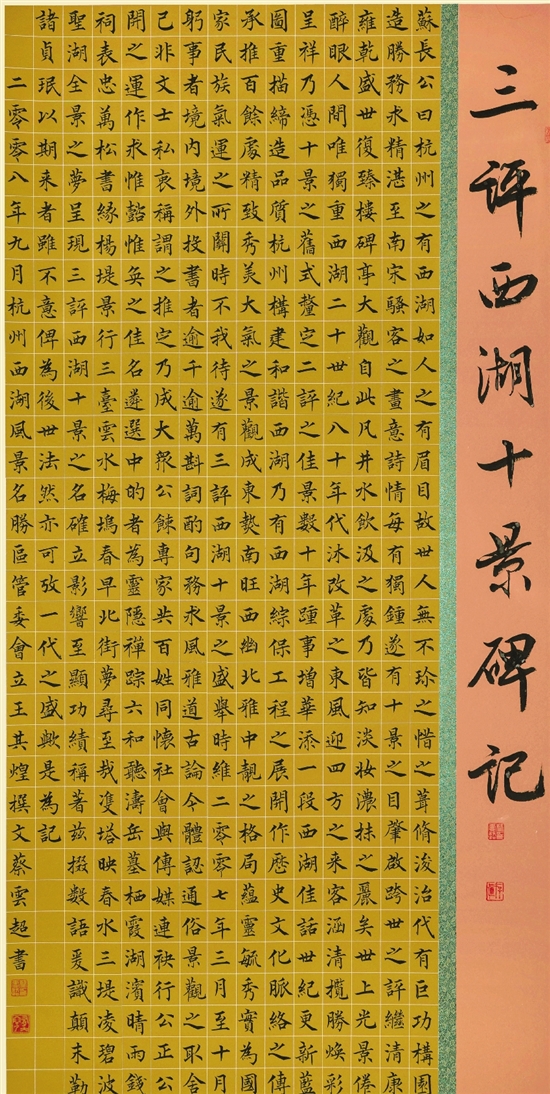 三評西湖十景碑記
蘇長公曰杭州之有西湖如人之有眉目故世人無不珍之惜之葺脩浚治代有巨功構園
造勝務求精湛至南宋騷客之畫意詩情每有獨鍾遂有十景之目肇啟跨世之評繼清康
雍乾盛世復臻樓碑亭大觀自此凡井水飲汲之處乃皆知淡妝濃抹之麗矣世上光景倦
醉眼人間唯獨重西湖二十世紀八十年代沐改革之東風迎四方之來客涵清攬勝煥彩
呈祥乃憑十景之舊式釐定二評之佳景數十年踵事增華添一段西湖佳話世紀更新藍
圖重描締造品質杭州構建和諧西湖乃有西湖綜保工程之展開作歷史文化脈絡之傳
承推百餘處精致秀美大氣之景觀成東熱南旺西幽北雅中靚之格局蘊靈毓秀實為國
家民族氣運之所關時不我待遂有三評西湖十景之盛舉時維二零零七年三月至十月
躬事者境內境外投書者逾千逾萬斟詞酌句務求風雅道古論今體認通俗景觀之取舍
已非文士私衷稱謂之推定乃成大衆公餗專家共百姓同懷社會與傳媒連袂行公正公
開之運作求惟懿惟奐之佳名遴選中的者為靈隱禪踪六和聽濤岳墓栖霞湖濱晴雨錢
祠表忠萬松書緣楊堤景行三臺雲水梅塢春早北街夢尋至哉雙塔映春水三堤凌碧波
聖湖全景之夢呈現三評西湖十景之名確立影響至顯功績稱著茲掇數語爰識顛末勒
諸貞珉以期來者雖不意俾為後世法然亦可攷一代之盛歟是為記
二零零八年九月杭州西湖風景名勝區管委會立王其煌撰文蔡雲超書